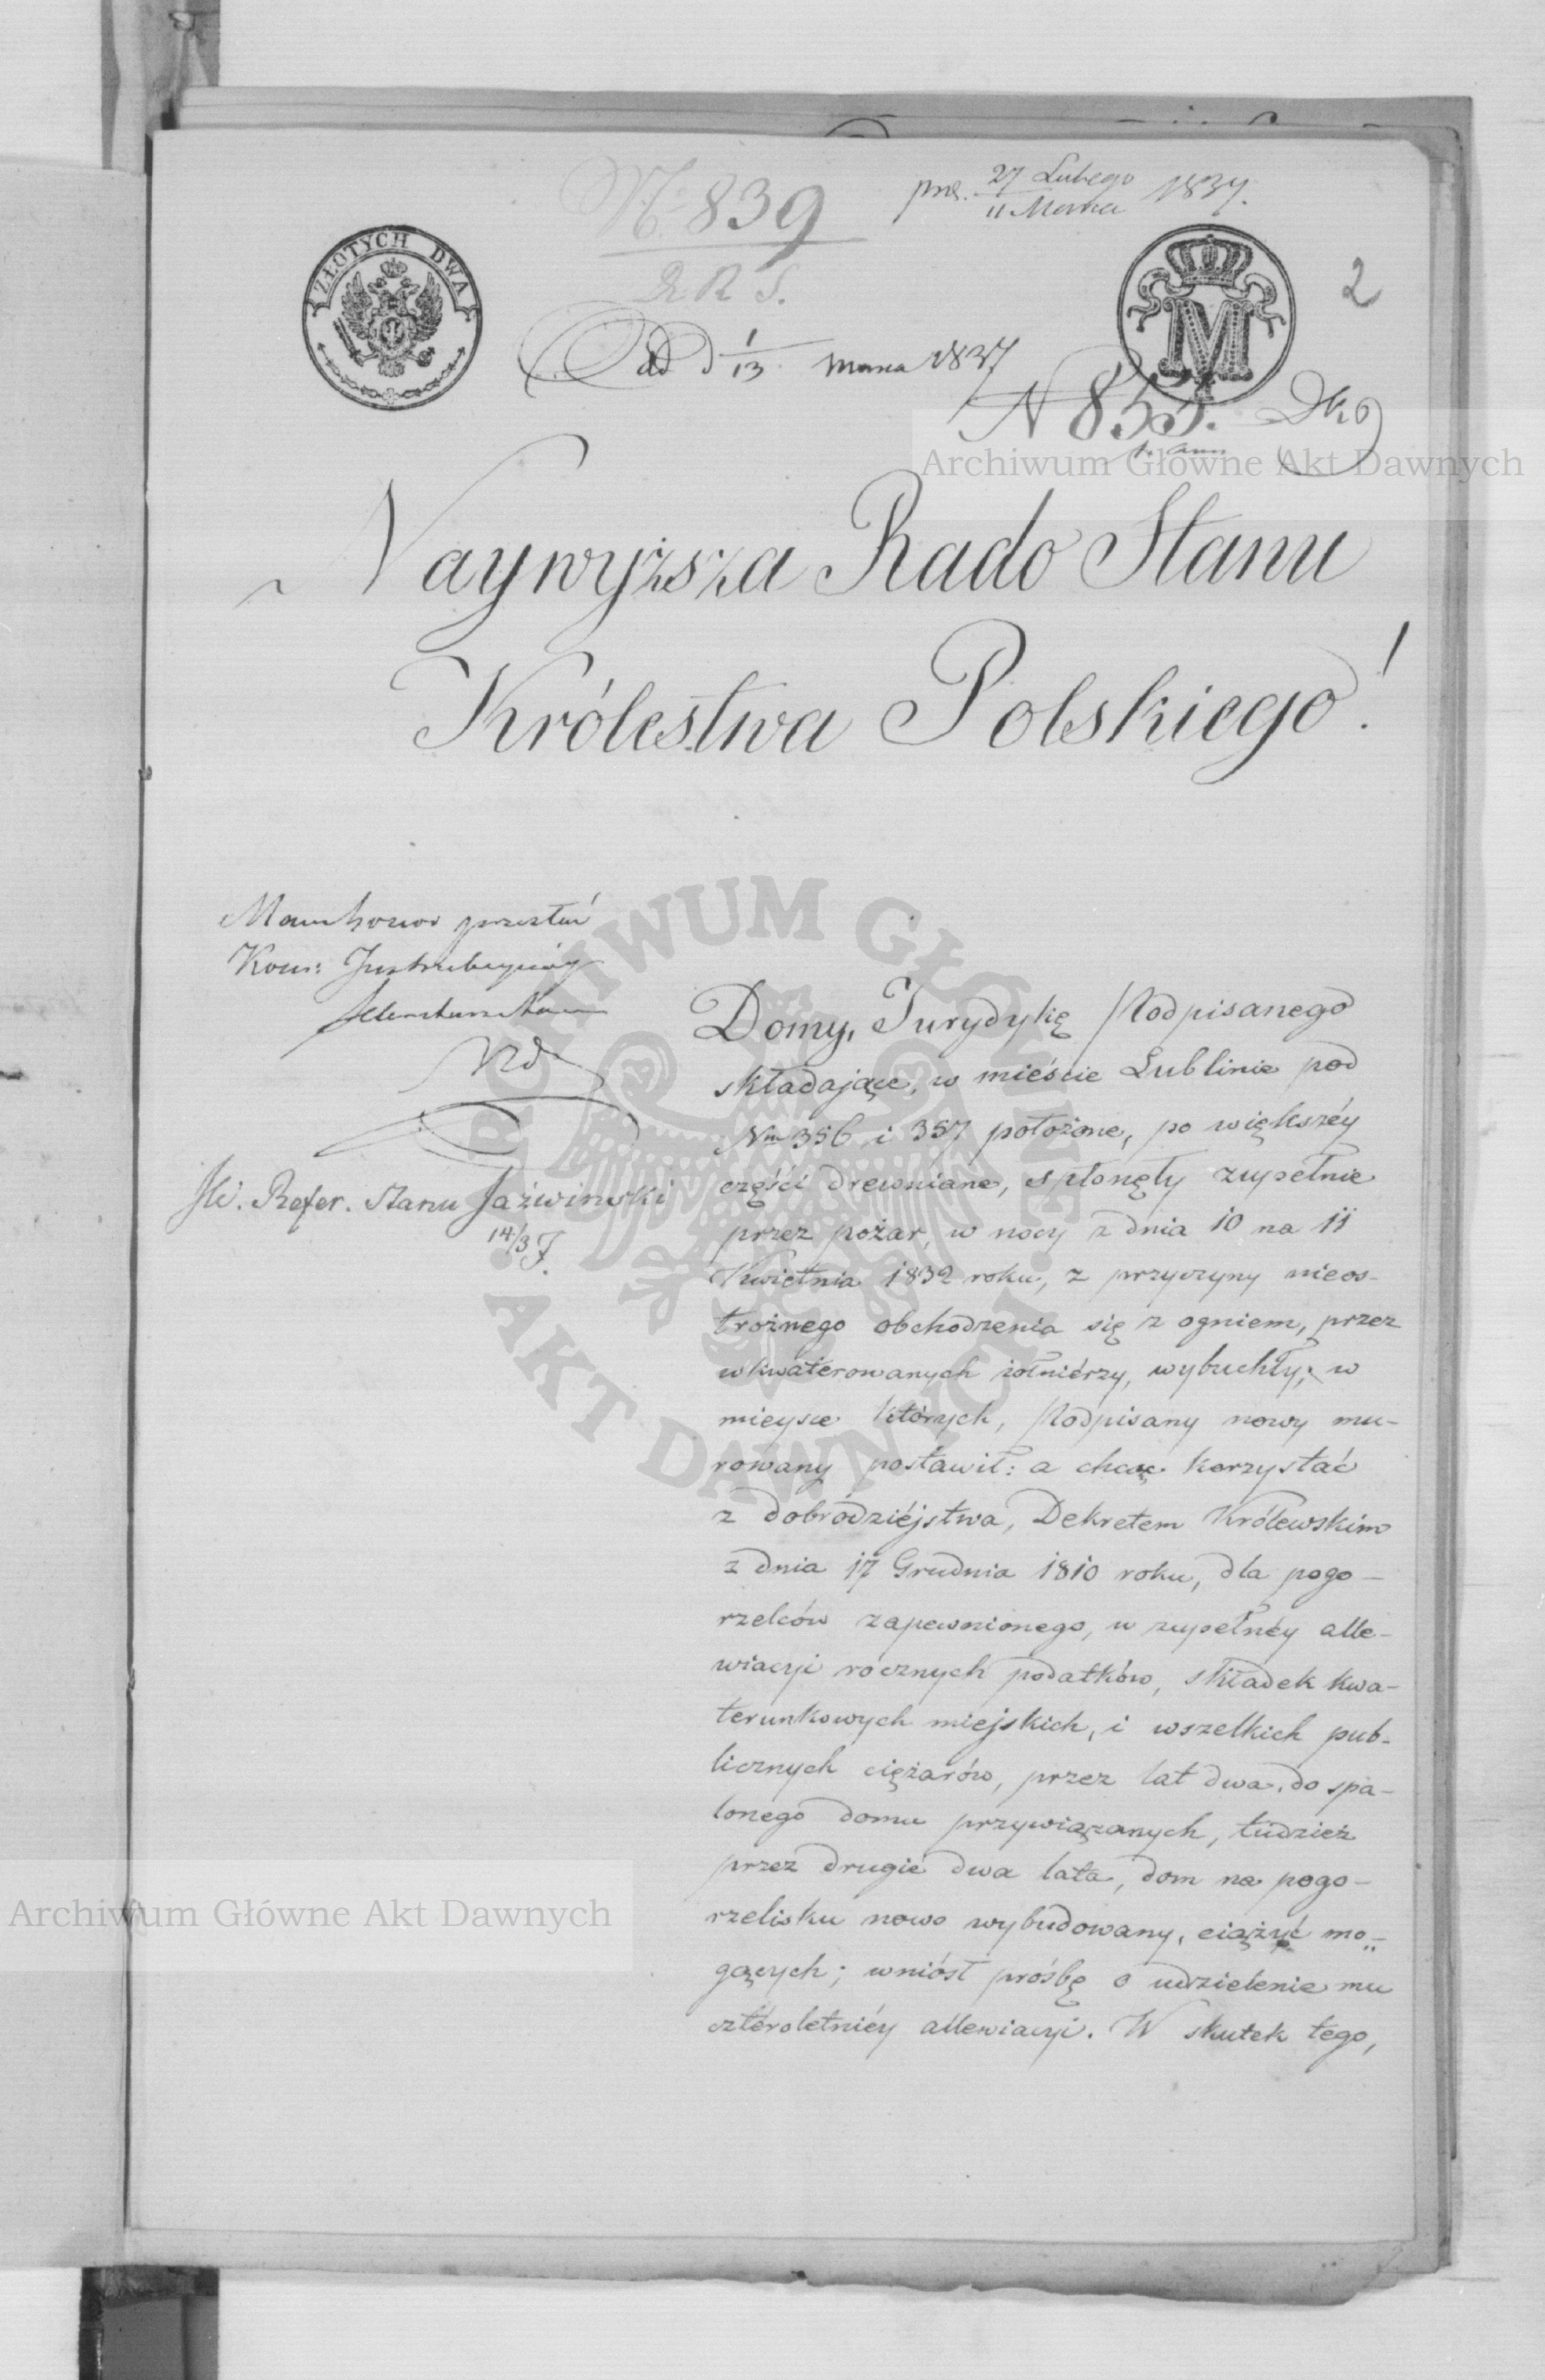 № 839
R R S.
27 Lutego
11 Marca 1837.
ZŁOTYCH DWA
M
2
dd d 1/13 Marca 1837
N 853.
Archiwum Główne Akt Dawnych
Naywyższa Rado Stanu
Królestwa Polskiego!
przesłać
Kom: Instrukcyinéy
JW. Refer. Stanu Jaźwinski
14/3 J.
Domy, Jurydykę Podpisanego
składające, w mieście Lublinie pod
Nm 356 i 357 położone, po większéy
części drewniane, spłonęły zupełnie
przez pożar, w nocy z dnia 10 na 11
Kwietnia 1832 roku, z przyczyny nieos-
trożnego obchodzenia się z ogniem, przez
wkwaterowanych żołniérzy, wybuchły; w
mieysce których, Podpisany nowy mu-
rowany postawił: a chcąc korzystać
z dobrodziéjstwa, Dekretem Królewskim
z dnia 17 Grudnia 1810 roku, dla pogo-
rzelców zapewnionego, w zupełnéy alle-
wiacyi rocznych podatków, składek kwa-
terunkowych miejskich, i wszelkich pub-
licznych ciężarów, przez lat dwa, do spa-
lonego domu przywiązanych, tudzież
przez drugie dwa lata, dom na pogo-
rzelisku nowo wybudowany, ciążyć mo-
gących; wniósł prośbę o udzielenie mu
cztéroletniéy allewiacyi. W skutek tego,
ARCHIWUM GŁÓWNE AKT DAWNYCH
Archiwum Główne Akt Dawnych